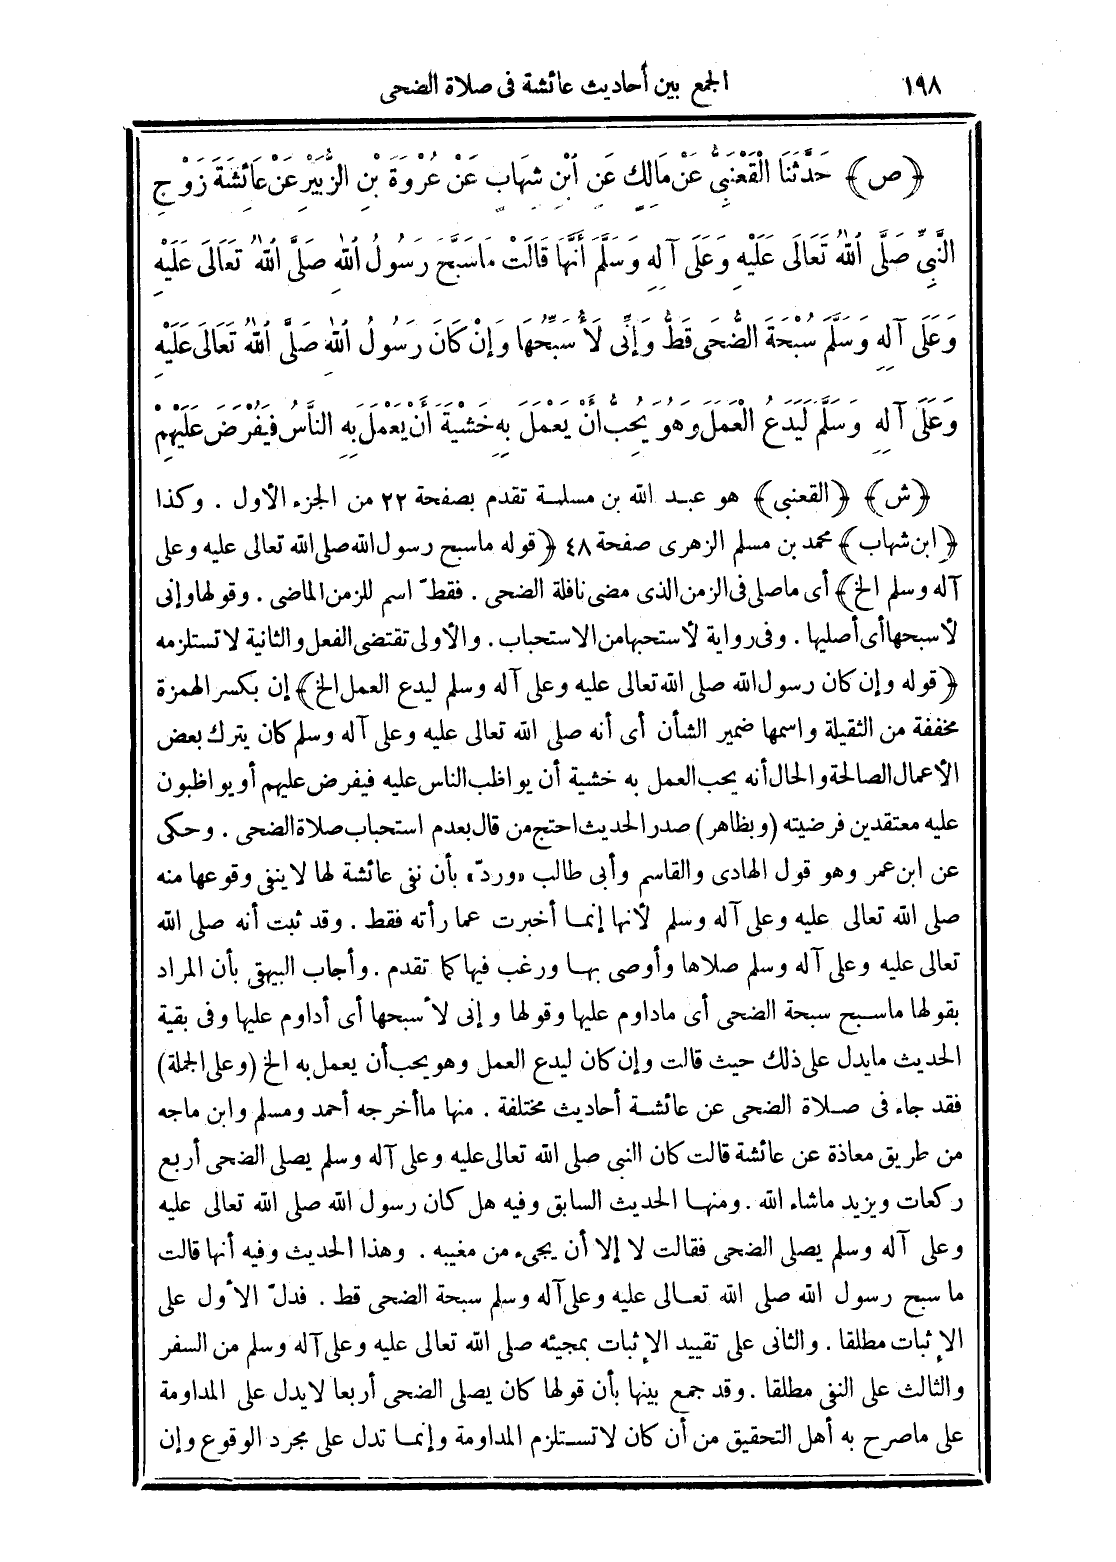 ١٩٨ الجمع بين أحاديث عائشة فى صلاة الضحى
﴿ص﴾ حَدَّثَنَا الْقَعْنَبِىُّ عَنْ مَالِكٍ عَنِ ابْنِ شِهَابٍ عَنْ عُرْوَةَ بْنِ الزُّبَيْرِ عَنْ عَائِشَةَ زَوْجِ
النَّبِىِّ صَلَّى اللهُ تَعَالَى عَلَيْهِ وَعَلَى آلِهِ وَسَلَّمَ أَنَّهَا قَالَتْ مَا سَبَّحَ رَسُولُ اللهِ صَلَّى اللهُ تَعَالَى عَلَيْهِ
وَعَلَى آلِهِ وَسَلَّمَ سُبْحَةَ الضُّحَى قَطُّ وَإِنِّى لَأُسَبِّحُهَا وَإِنْ كَانَ رَسُولُ اللهِ صَلَّى اللهُ تَعَالَى عَلَيْهِ
وَعَلَى آلِهِ وَسَلَّمَ لَيَدَعُ الْعَمَلَ وَهُوَ يُحِبُّ أَنْ يَعْمَلَ بِهِ خَشْيَةَ أَنْ يَعْمَلَ بِهِ النَّاسُ فَيُفْرَضَ عَلَيْهِمْ
﴿ش﴾ ﴿القعنبى﴾ هو عبد الله بن مسلمة تقدم بصفحة ٢٢ من الجزء الأول . وكذا
﴿ابن شهاب﴾ محمد بن مسلم الزهرى صفحة ٤٨ ﴿قوله ما سبح رسول الله صلى الله تعالى عليه وعلى
آله وسلم الخ﴾ أى ما صلى فى الزمن الذى مضى نافلة الضحى . فقطّ اسم للزمن الماضى . وقولها وإنى
لأسبحها أى أصليها . وفى رواية لأستحبها من الاستحباب . والأولى تقتضى الفعل والثانية لا تستلزمه
﴿قوله وإن كان رسول الله صلى الله تعالى عليه وعلى آله وسلم ليدع العمل الخ﴾ إن بكسر الهمزة
مخففة من الثقيلة واسمها ضمير الشأن أى أنه صلى الله تعالى عليه وعلى آله وسلم كان يترك بعض
الأعمال الصالحة والحال أنه يحب العمل به خشية أن يواظب الناس عليه فيفرض عليهم أو يواظبون
عليه معتقدين فرضيته (وبظاهر) صدر الحديث احتج من قال بعدم استحباب صلاة الضحى . وحكى
عن ابن عمر وهو قول الهادى والقاسم وأبى طالب «وردّ» بأن نفى عائشة لها لا ينفى وقوعها منه
صلى الله تعالى عليه وعلى آله وسلم لأنها إنما أخبرت عما رأته فقط . وقد ثبت أنه صلى الله
تعالى عليه وعلى آله وسلم صلاها وأوصى بها ورغب فيها كما تقدم . وأجاب البيهقى بأن المراد
بقولها ما سبح سبحة الضحى أى ما داوم عليها وقولها وإنى لأسبحها أى أداوم عليها وفى بقية
الحديث ما يدل على ذلك حيث قالت وإن كان ليدع العمل وهو يحب أن يعمل به الخ (وعلى الجملة)
فقد جاء فى صلاة الضحى عن عائشة أحاديث مختلفة . منها ما أخرجه أحمد ومسلم وابن ماجه
من طريق معاذة عن عائشة قالت كان النبى صلى الله تعالى عليه وعلى آله وسلم يصلى الضحى أربع
ركعات ويزيد ماشاء الله . ومنها الحديث السابق وفيه هل كان رسول الله صلى الله تعالى عليه
وعلى آله وسلم يصلى الضحى فقالت لا إلا أن يجىء من مغيبه . وهذا الحديث وفيه أنها قالت
ما سبح رسول الله صلى الله تعالى عليه وعلى آله وسلم سبحة الضحى قط . فدلّ الأول على
الإثبات مطلقا . والثانى على تقييد الإثبات بمجيئه صلى الله تعالى عليه وعلى آله وسلم من السفر
والثالث على النفى مطلقا . وقد جمع بينها بأن قولها كان يصلى الضحى أربعا لا يدل على المداومة
على ما صرح به أهل التحقيق من أن كان لا تستلزم المداومة وإنما تدل على مجرد الوقوع وإن